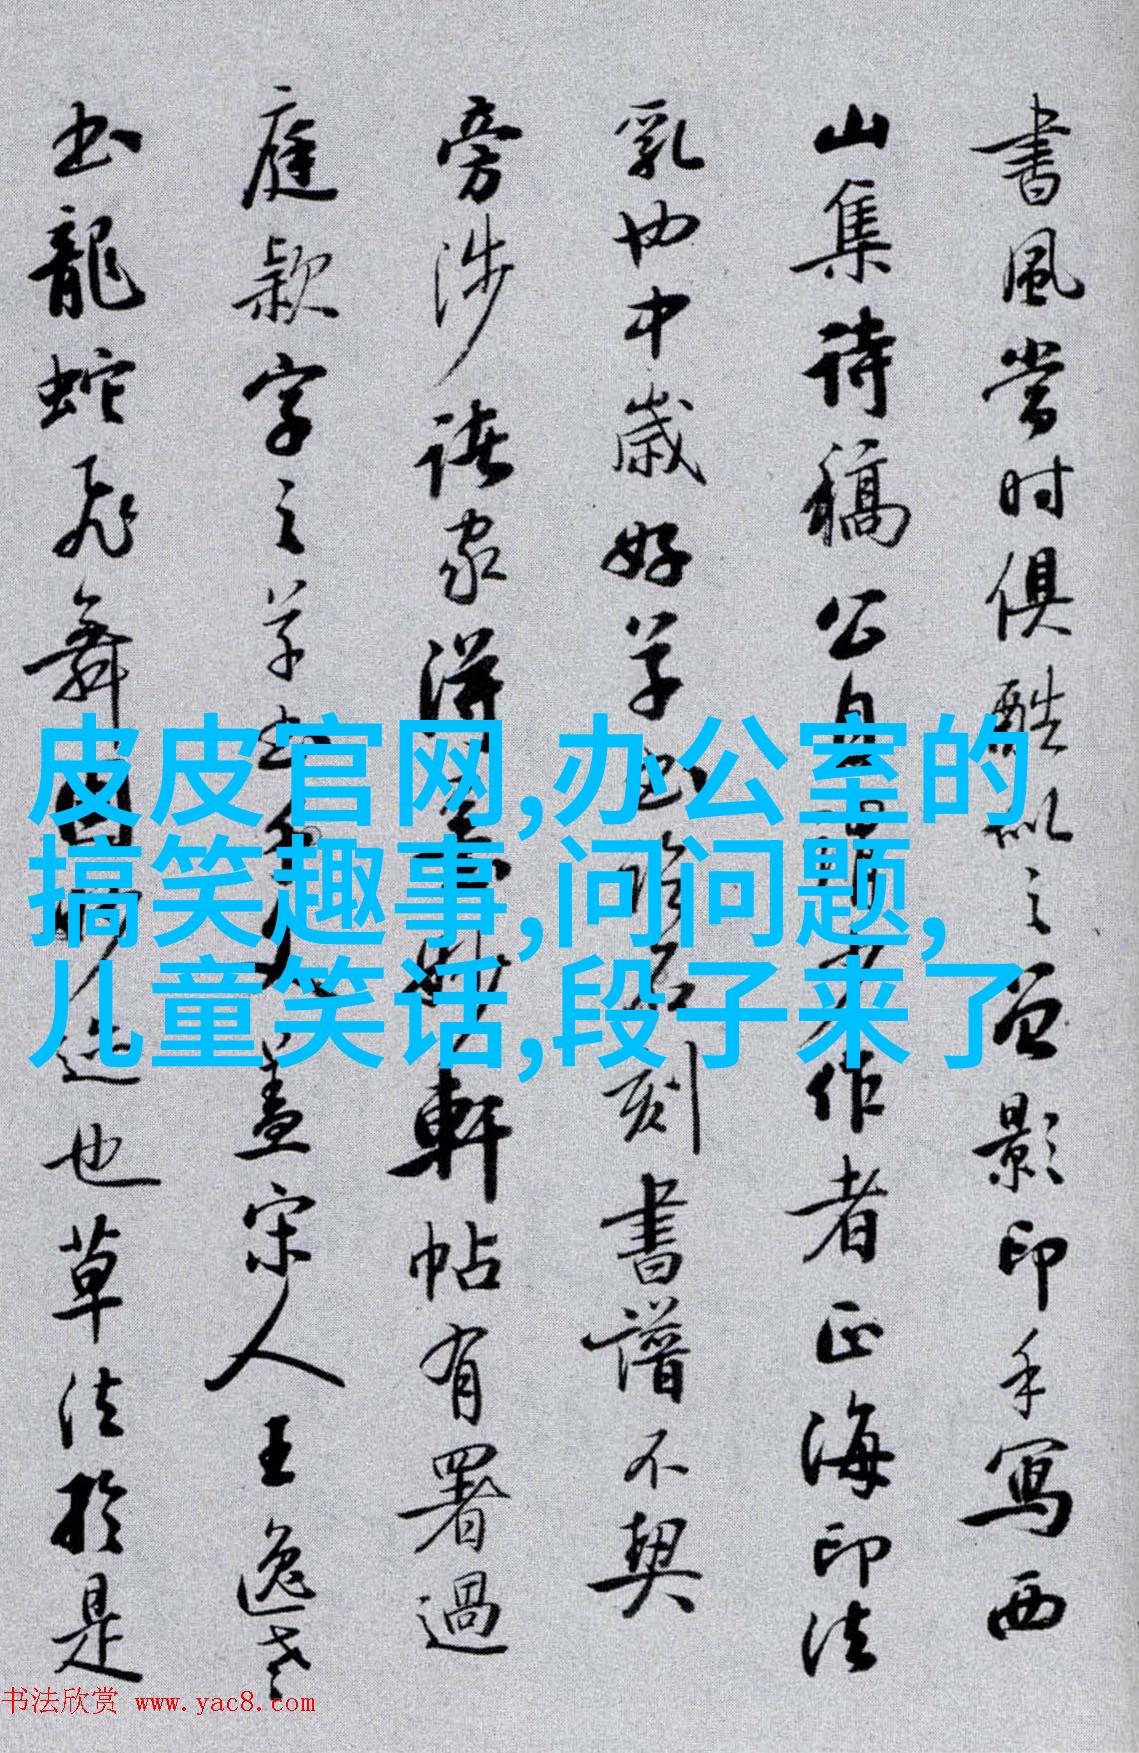 書風嘗時俱酷似之曾影印手寫西
山集詩稿公自
作者正海印法
乳出中歲好草
刻書譜不契
旁涉諸家得
軒帖有署過
庭款字之草
蓋宋人王逸老
書龍蛇飛舞
迹也草法於是
皮皮官网,办公室的
搞笑趣事,问问题,
儿童笑话,段子来了
书法欣赏 www.yac8.com